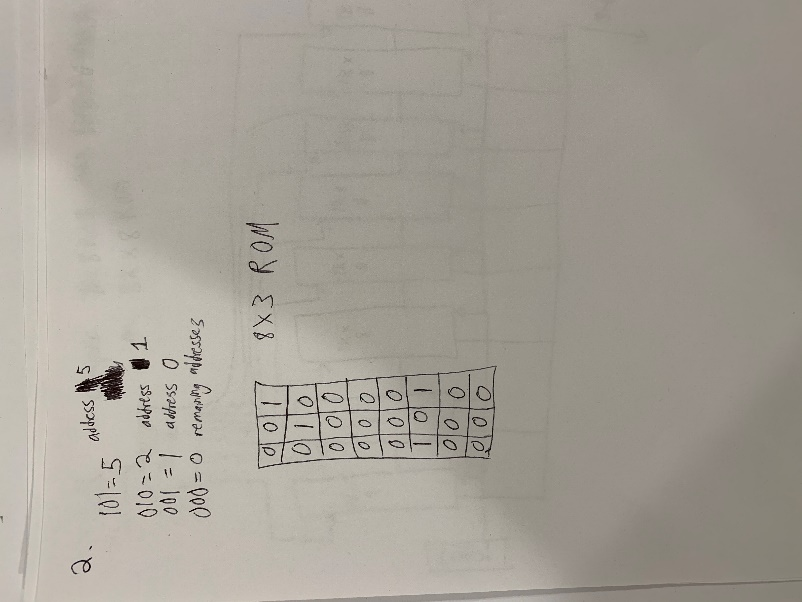 2.
101 = 5 address 5
010 = 2 address 1
001 = 1 address 0
000 = 0 remaining addresses
8X3 ROM
0 0 1
0 1 0
0 0 0
0 0 0
0 0 0
1 0 1
0 0 0
0 0 0